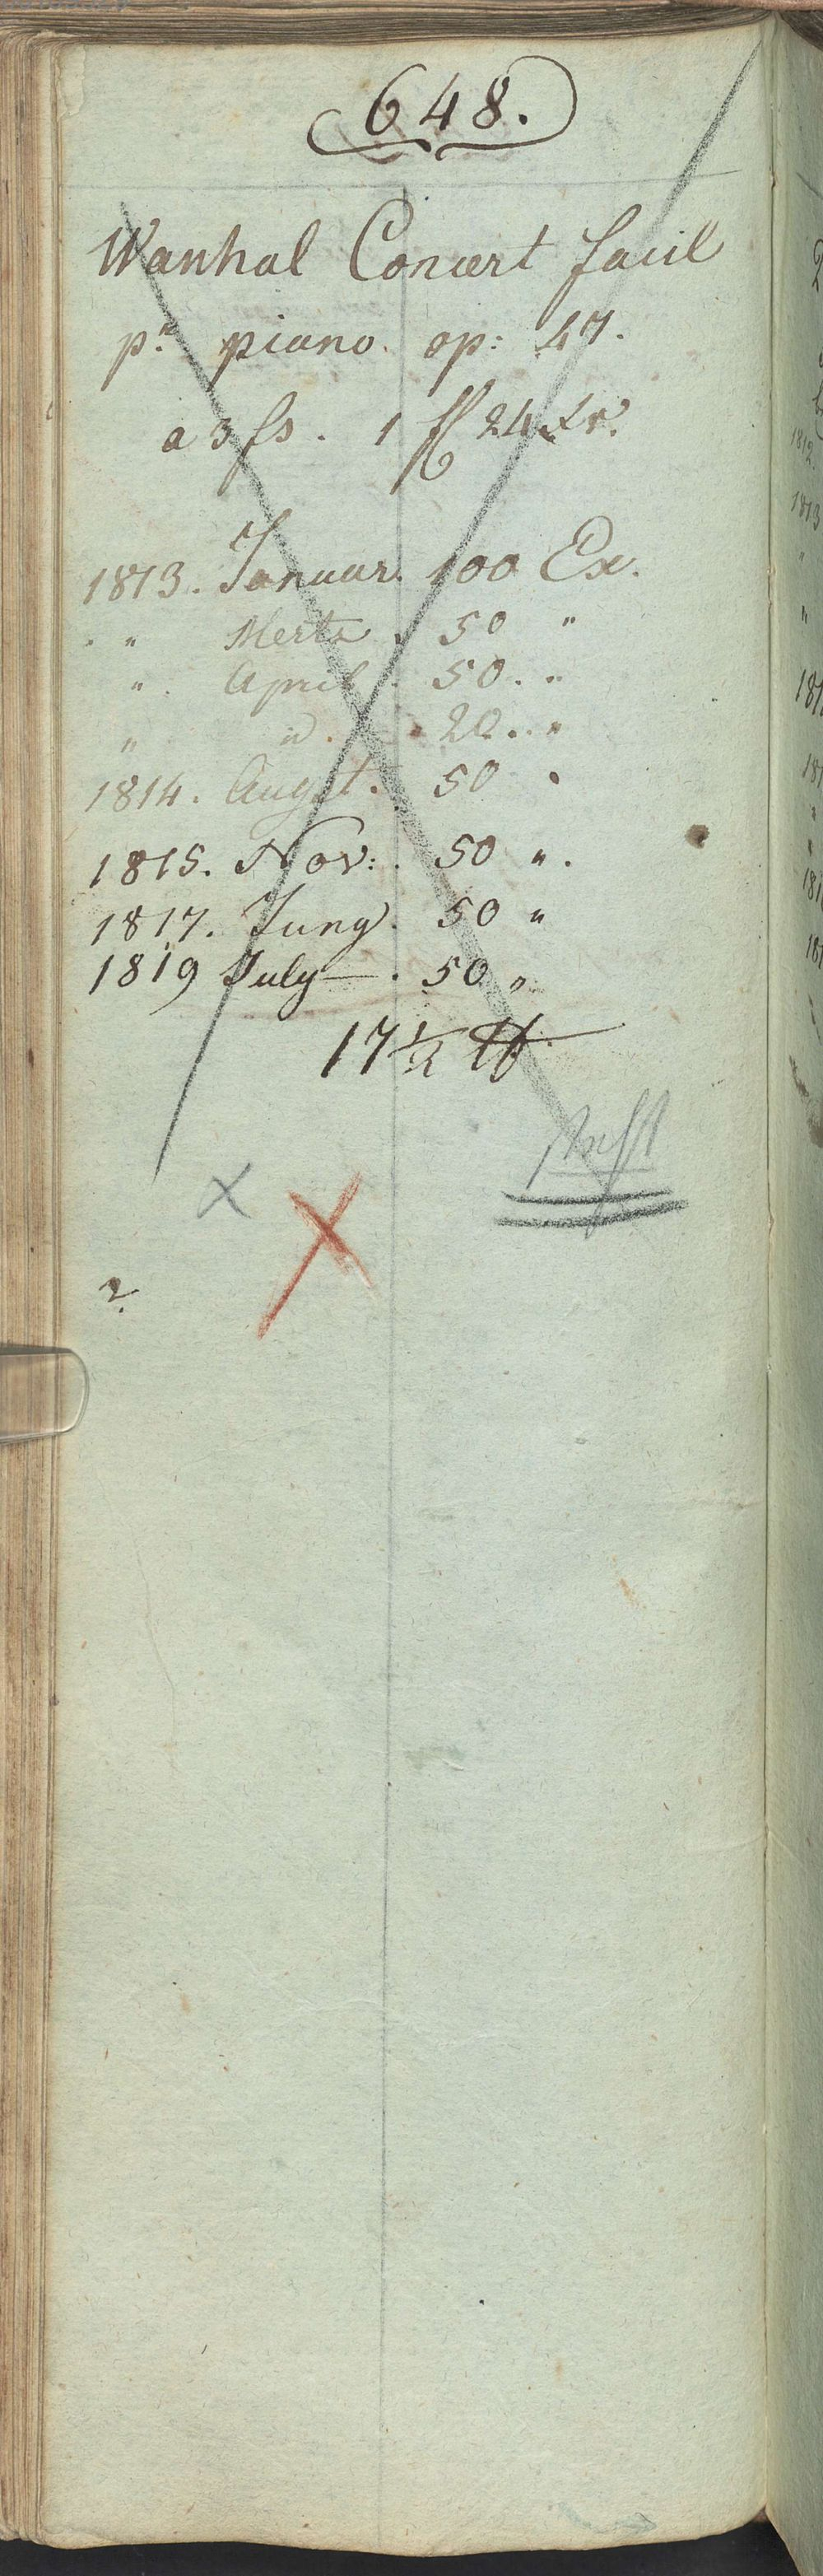 648.
Wanhal Concert facil
pr piano op: 47.
a 3 fs. 1 fl 24 xr.
1813. Januar. 100 Ex.
" Mertz . 50 "
" April . 50. "
" " . 20. "
1814. Augst. 50 "
1815. Nov: . 50 ".
1817. Juny . 50 "
1819 July — . 50 "
17 1/2 ℔
x X
?